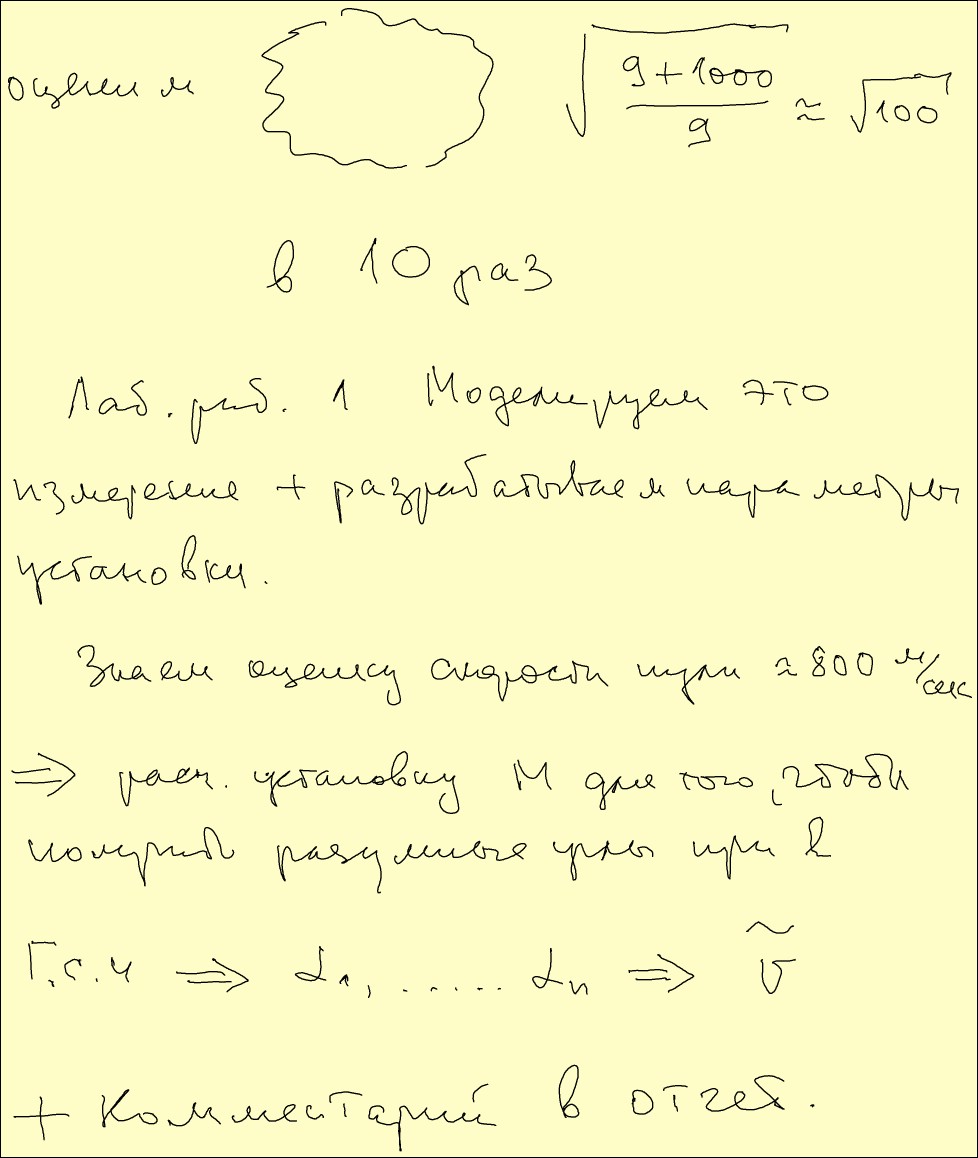 оценим √((9+1000)/9) ≈ √100
в 10 раз
Лаб. раб. 1 Моделируем это
измерение + разрабатываем параметры
установки.
Знаем оценку скорости пули ≈ 800 м/сек
⇒ расч. установку M для того, чтобы
получить разумные углы при
Г.с.ч ⇒ α₁, ...... αₙ ⇒ ṽ
+ Комментарий в отчет.